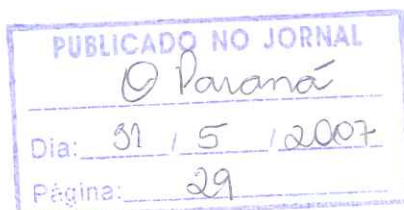 PUBLICADO NO JORNAL
O Paraná
Dia: 31 / 5 / 2007
Página: 29